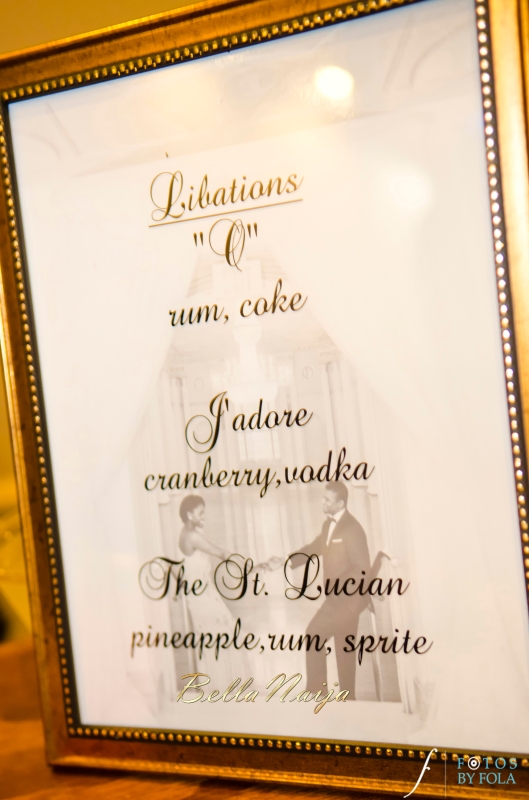 Libations
"O"
rum, coke
J'adore
cranberry,vodka
The St. Lucian
pineapple,rum, sprite
BellaNaija
f FOTOS
BY FOLA